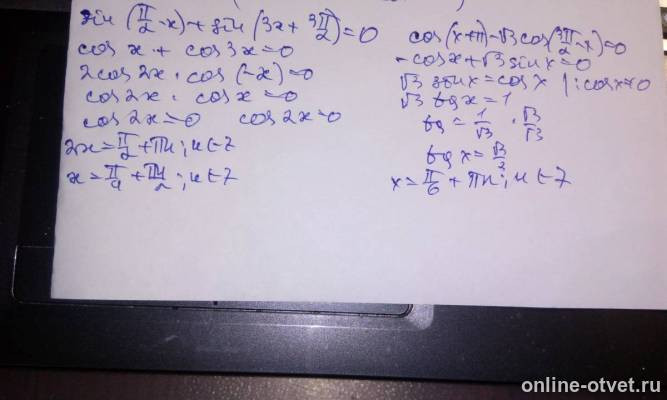 sin(π/2-x)+sin(3x+3π/2)=0
cos x + cos3x=0
2cos2x·cos(-x)=0
cos2x·cosx=0
cos2x=0 cos2x=0
2x=π/2+πn;n∈Z
x=π/4+πn/2;n∈Z
cos(x+π)-√3cos(3π/2-x)=0
-cosx+√3sinx=0
√3sinx=cosx |:cosx≠0
√3tgx=1
tg=1/√3·√3/√3
tgx=√3/3
x=π/6+πn;n∈Z
online-otvet.ru